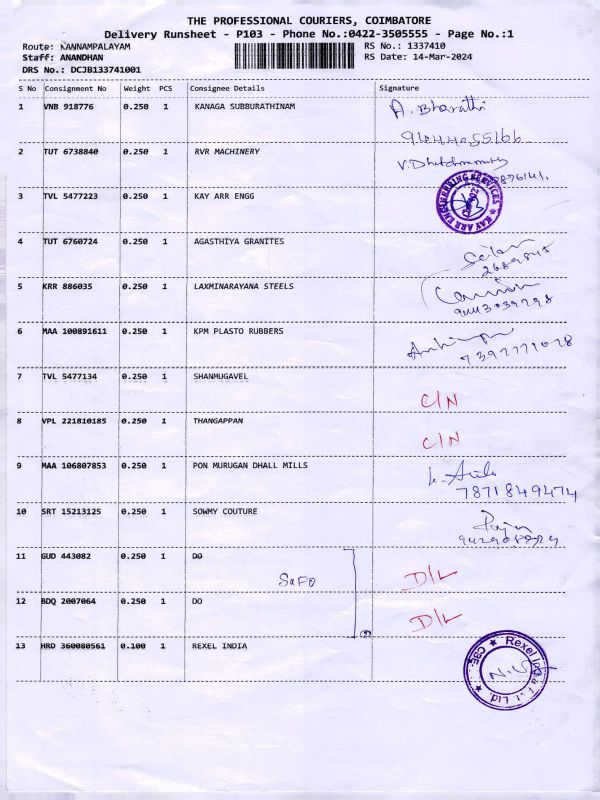 THE PROFESSIONAL COURIERS, COIMBATORE
Delivery Runsheet - P103 - Phone No.:0422-3505555 - Page No.:1
Route: KANNAMPALAYAM
RS No.: 1337410
Staff: ANANDHAN
RS Date: 14-Mar-2024
DRS No.: DCJB133741001
S No Consignment No Weight PCS Consignee Details Signature
1 VNB 918776 0.250 1 KANAGA SUBBURATHINAM A. Bharathi
2 TUT 6738840 0.250 1 RVR MACHINERY
3 TVL 5477223 0.250 1 KAY ARR ENGG KAY ARR ENGINEERING SERVICES
4 TUT 6760724 0.250 1 AGASTHIYA GRANITES
5 KRR 886035 0.250 1 LAXMINARAYANA STEELS
6 MAA 100891611 0.250 1 KPM PLASTO RUBBERS
7 TVL 5477134 0.250 1 SHANMUGAVEL C/N
8 VPL 221810185 0.250 1 THANGAPPAN C/N
9 MAA 106807853 0.250 1 PON MURUGAN DHALL MILLS
7871849474
10 SRT 15213125 0.250 1 SOWMY COUTURE
11 GUD 443082 0.250 1 DO D/L
12 BDQ 2007064 0.250 1 DO D/L
13 HRD 360080561 0.100 1 REXEL INDIA Rexel India P Ltd. CBE